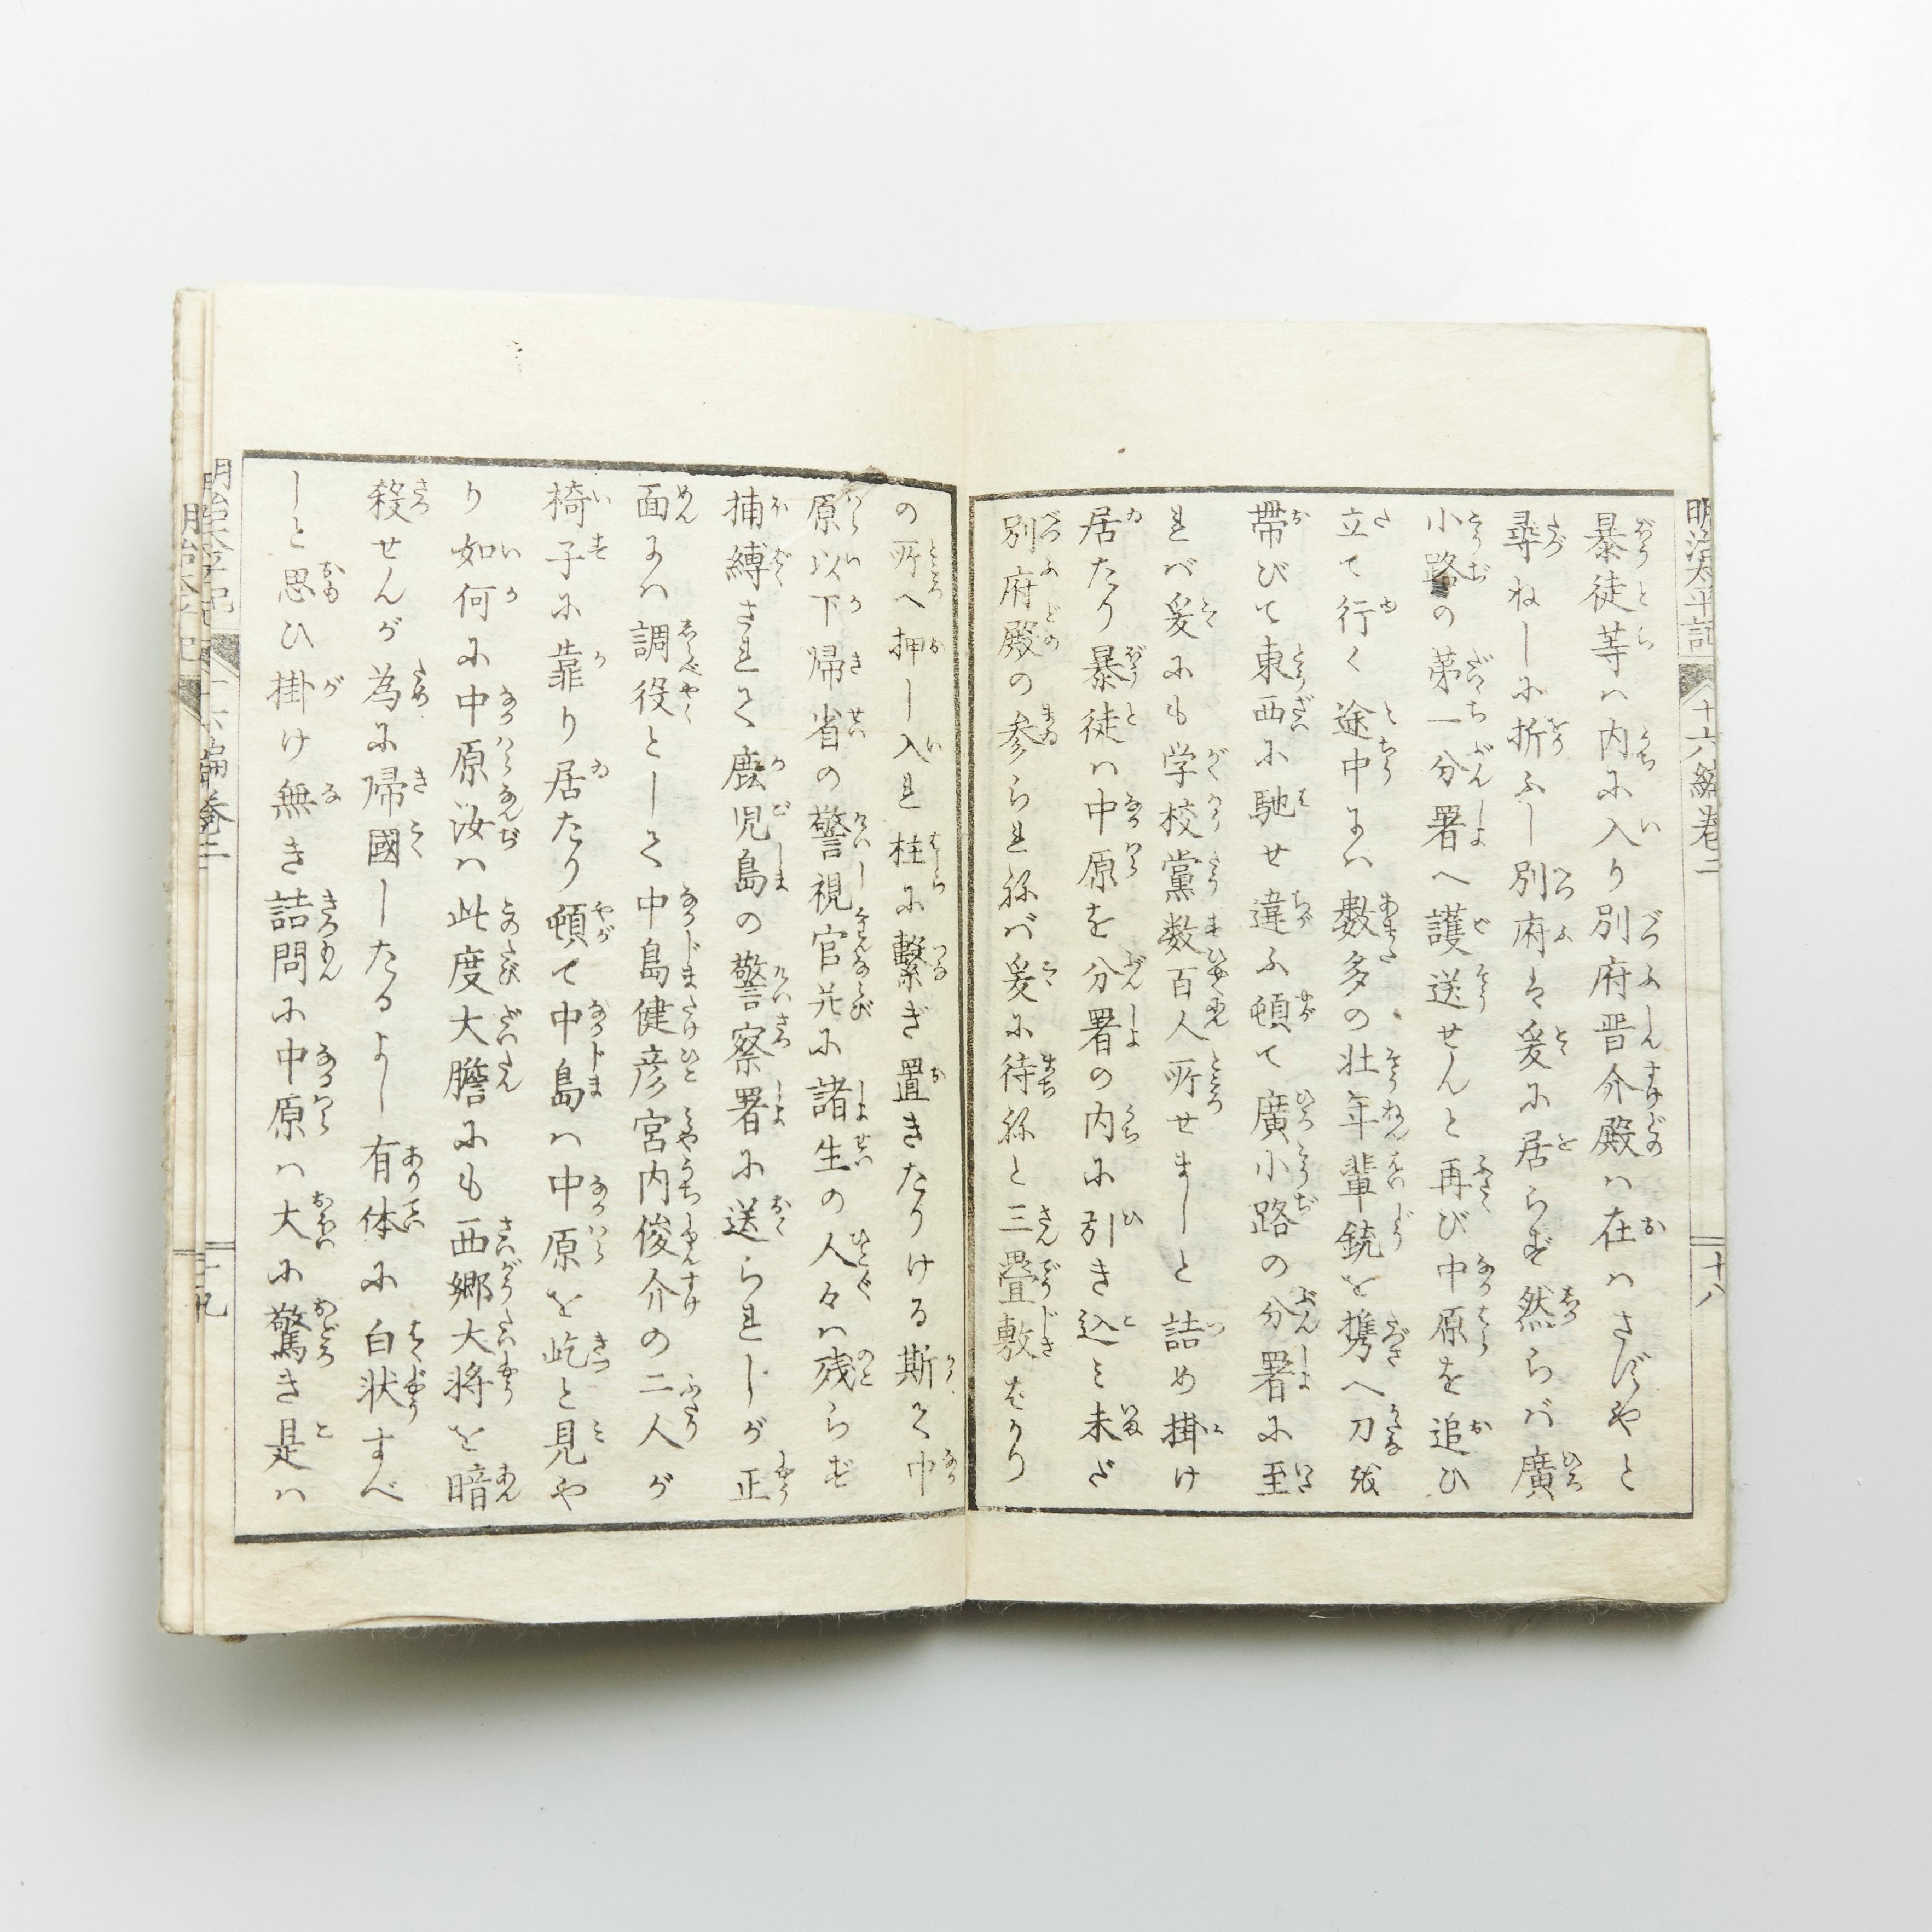 明治太平記 十六編巻二 十八
暴徒等ハ内に入り別府晋介殿ハ在ハさずやと
尋ねしに折ふし別府は爰に居らず然らバ廣
小路の第一分署へ護送せんと再び中原を追ひ
立て行く途中にハ数多の壮年輩銃を携へ刀を
帯びて東西に馳せ違ふ頓て廣小路の分署に至
れバ爰にも学校黨数百人所せましと詰め掛け
居たり暴徒ハ中原を分署の内に引き込ミ未だ
別府殿の参られねバ爰に待ねと三畳敷ばかり
の所へ押し入れ柱に繋ぎ置きたりける斯て中
原以下帰省の警視官并に諸生の人々ハ残らず
捕縛されて鹿児島の警察署に送られしが正
面にハ調役として中島健彦宮内俊介の二人が
椅子に靠り居たり頓て中島ハ中原を屹と見や
り如何に中原汝ハ此度大膽にも西郷大将を暗
殺せんが為に帰國したるよし有体に白状すべ
しと思ひ掛け無き詰問に中原ハ大に驚き是ハ
明治太平記 十六編巻二 十九